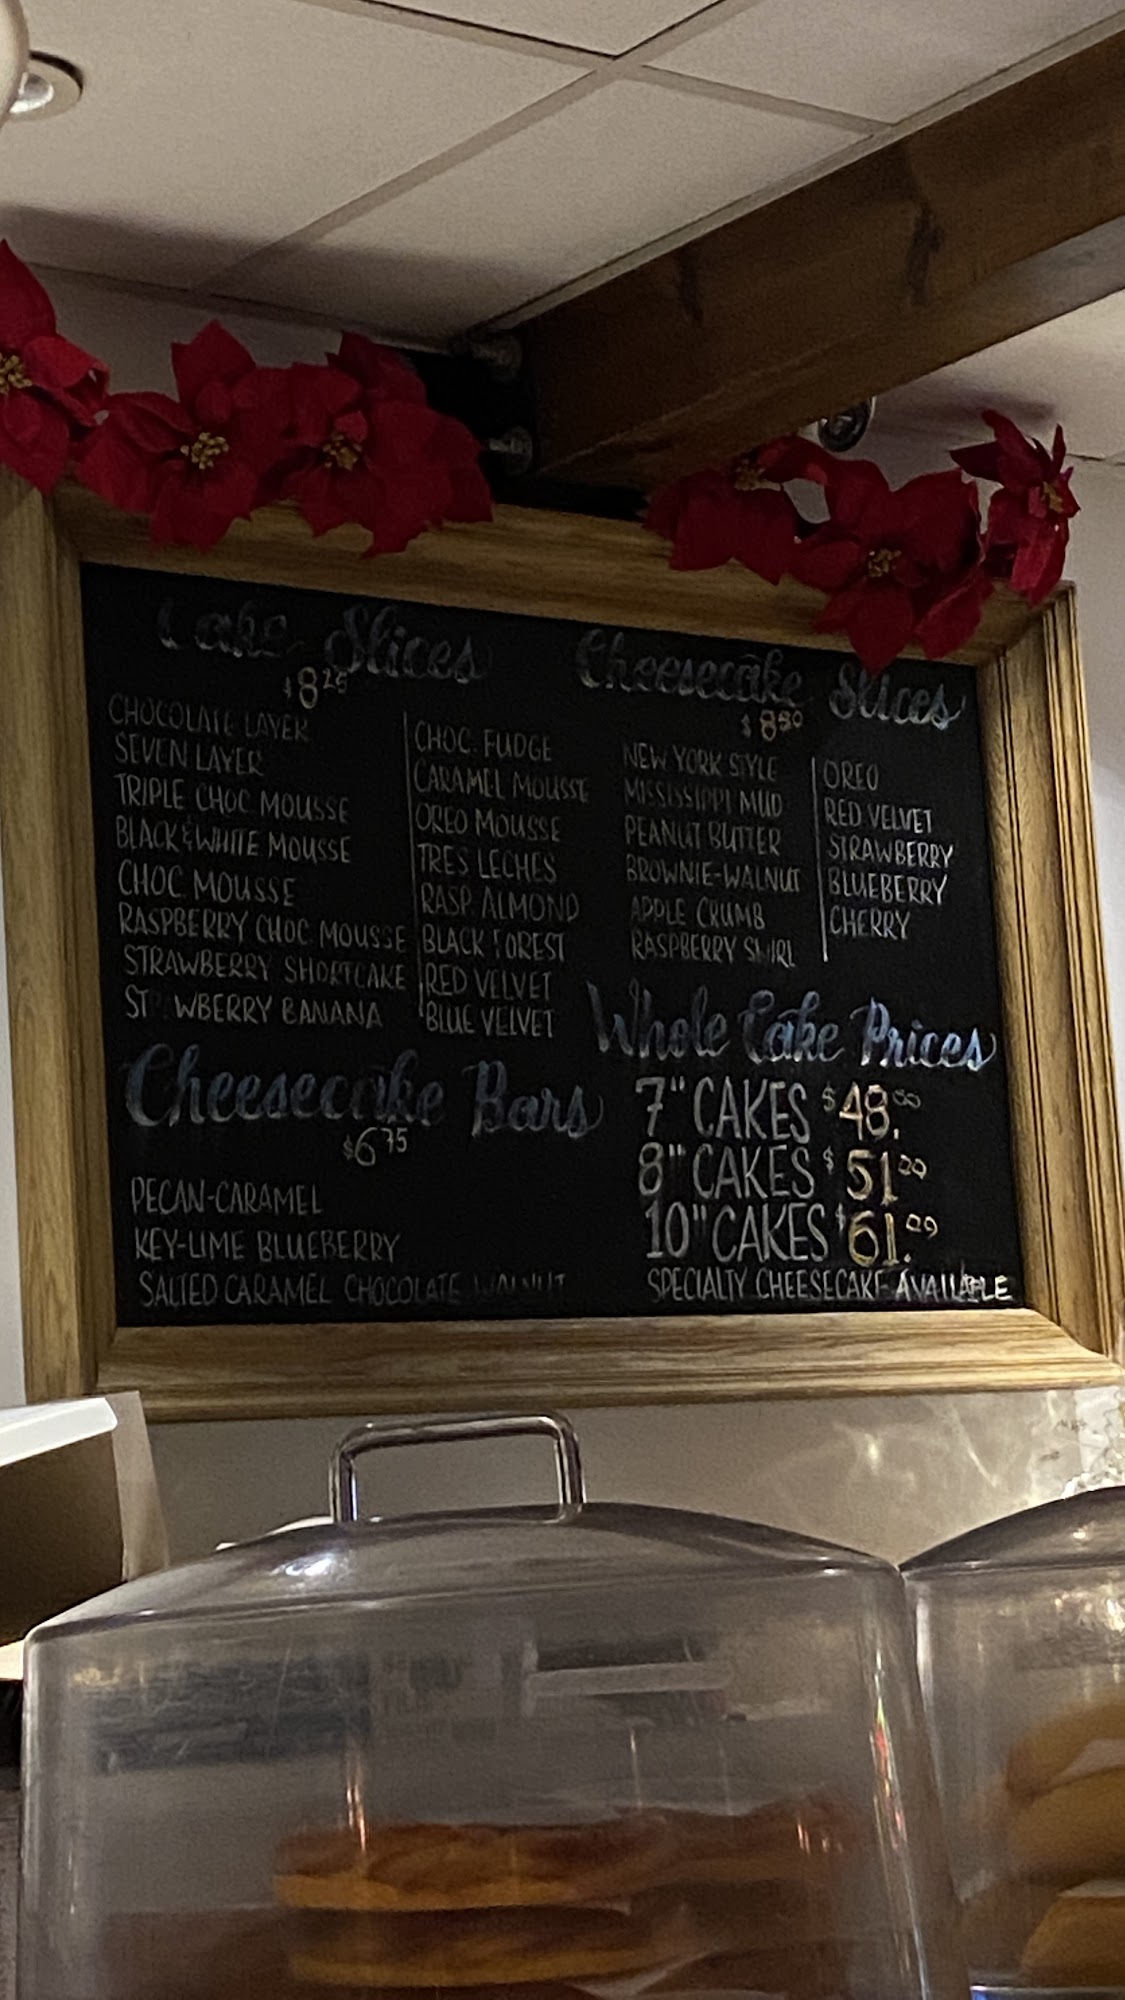 Cake Slices
$8.25
CHOCOLATE LAYER
SEVEN LAYER
TRIPLE CHOC MOUSSE
BLACK & WHITE MOUSSE
CHOC. MOUSSE
RASPBERRY CHOC. MOUSSE
STRAWBERRY SHORTCAKE
ST WBERRY BANANA
CHOC. FUDGE
CARAMEL MOUSSE
OREO MOUSSE
TRES LECHES
RASP. ALMOND
BLACK FOREST
RED VELVET
BLUE VELVET
Cheesecake Slices
$8.50
NEW YORK STYLE
MISSISSIPPI MUD
PEANUT BUTTER
BROWNIE-WALNUT
APPLE CRUMB
RASPBERRY SWIRL
OREO
RED VELVET
STRAWBERRY
BLUEBERRY
CHERRY
Cheesecake Bars
$6.75
PECAN-CARAMEL
KEY-LIME BLUEBERRY
SALTED CARAMEL CHOCOLATE WALNUT
Whole Cake Prices
7" CAKES $48.00
8" CAKES $51.00
10" CAKES $61.00
SPECIALTY CHEESECAKE AVAILABLE